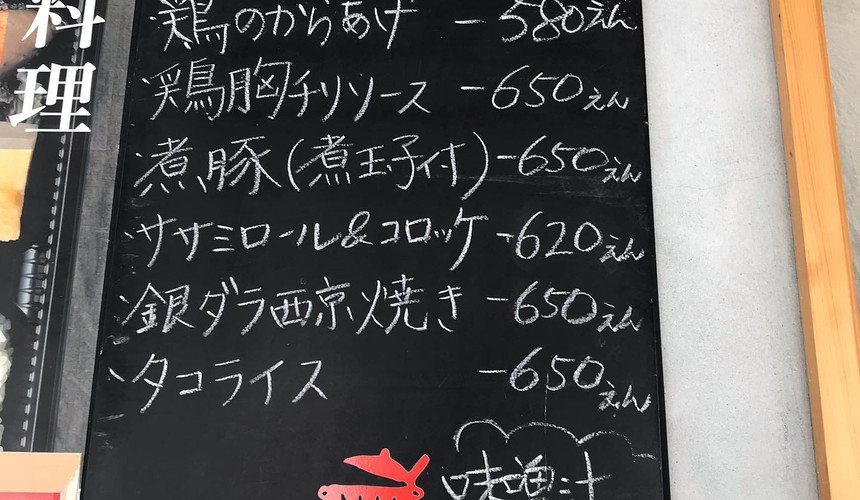 料理
鶏のからあげ -580えん
鶏胸チリソース -650えん
煮豚(煮玉子付)-650えん
ササミロール&コロッケ -620えん
銀ダラ西京焼き -650えん
タコライス -650えん
味噌汁